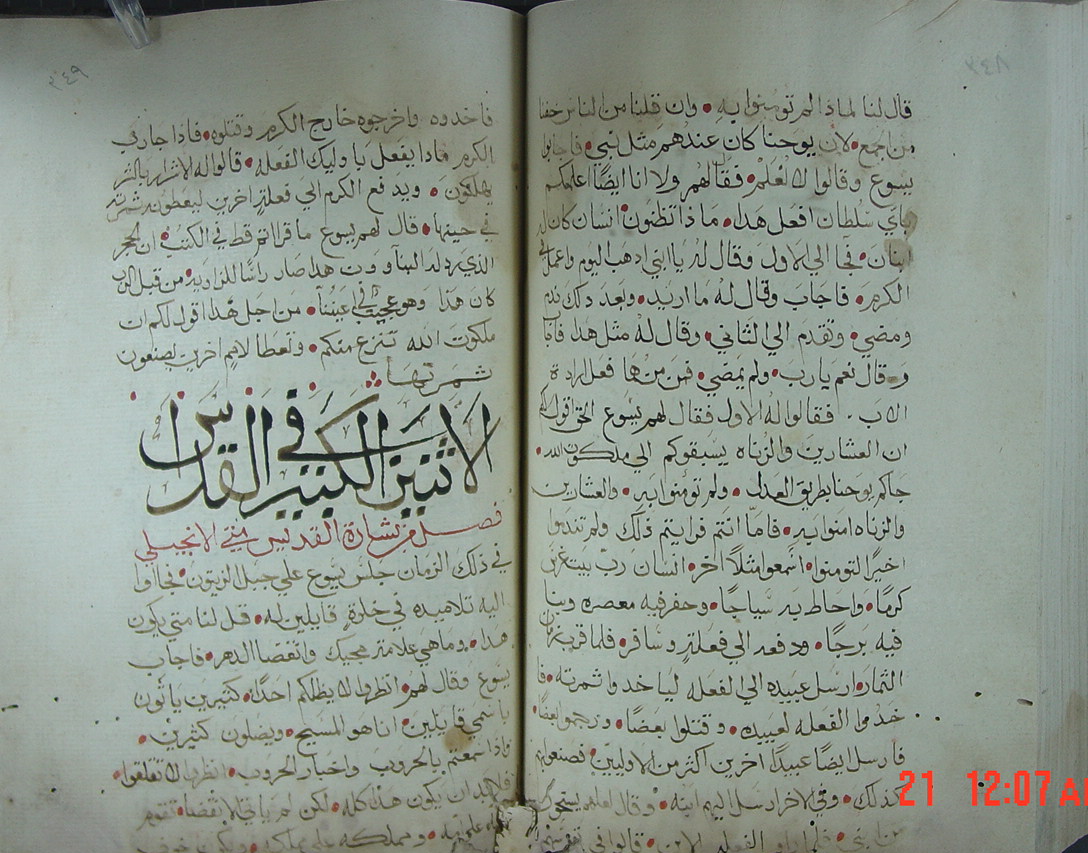 ٣٤٨
قال لنا لماذا لم تومنوا به • وان قلنا من الناس خفنا
من اجمع • لان يوحنا كان عندهم مثل نبي • فاجابوا
يسوع وقالوا لا نعلم • فقال لهم ولا انا ايضًا اعلمكم
باي سلطان افعل هدا • ما ذا تظنون • انسان كان له
ابنان • فجا الي الاول وقال له يا ابني ادهب اليوم واعمل في
الكرم • فاجاب وقال له ما اريد • وبعد دلك ندم
ومضي • وتقدم الي الثاني • وقال له مثل هدا فاجاب
وقال نعم يا رب • ولم يمضي • فمن منهما فعل ارادة
الاب • فقالوا له الاول فقال لهم يسوع الحق اقول لكم
ان العشارين والزناه يسبقوكم الي ملكوت الله •
جاكم يوحنا بطريق العدل • ولم تومنوا به • والعشارين
والزناه امنوا به • فامّا انتم فرايتم ذلك ولم تندموا
اخيرًا لتومنوا • اسمعوا مثلاً اخر • انسان رب بيت غرس
كرمًا • واحاط به سياجًا • وحفر فيه معصره وبنا
فيه برجًا • ودفعه الي فعلةٍ وسافر • فلما قرب زمان
الثمار • ارسل عبيده الي الفعله ليا خدوا ثمرته • فا
خدوا الفعله لعبيده • وقتلوا بعضًا • ورجموا بعضًا •
فارسل ايضًا عبيدًا اخرين اكثر من الاوليين • فصنعوا بهم
كدلك • وفي الاخر ارسل اليهم ابنه • وقال لعلهم يستحيون
من ابني • فلما راو الفعله الابن • قالوا في نفوسهم
٣٤٩
فاخدوه واخرجوه خارج الكرم وقتلوه • فاذا جا رب
الكرم ماذا يفعل باوليك الفعله • قالوا له الاشرار بالشر
يهلكون • ويدفع الكرم الي فعلةٍ اخرين ليعطونه ثمرته
في حينها • قال لهم يسوع ما قراتم قط في الكتب • ان الحجر
الذي رذله البناوون هدا صار راسًا للزاويه • من قبل الرب
كان هذا وهو عجيب في اعيننا • من اجل هدا اقول لكم ان
ملكوت الله تنزع منكم • وتعطا لامم اخرين يصنعون
ثمرتها
الاثنين الكبير في القداس
فصل من بشارة القديس متي الانجيلي
في ذلك الزمان جلس يسوع علي جبل الزيتون • فجاوا
اليه تلاميده في خلوةٍ قايلين له • قل لنا متي يكون
هدا • وما هي علامة مجيك وانقضا الدهر • فاجاب
يسوع وقال لهم • انظروا لا يظلكم احدًا • كثيرين ياتون
باسمي قايلين • انا هو المسيح • ويضلون كثيرين •
فاذا سمعتم بالحروب واخبار الحروب • انظروا لا تقلقوا •
فلابد ان يكون هدا كله • لكن لم ياتي الانقضا • تقوم
امه علي امه • ومملكه علي مملكه • ويكون خوف
21 12:07 AM